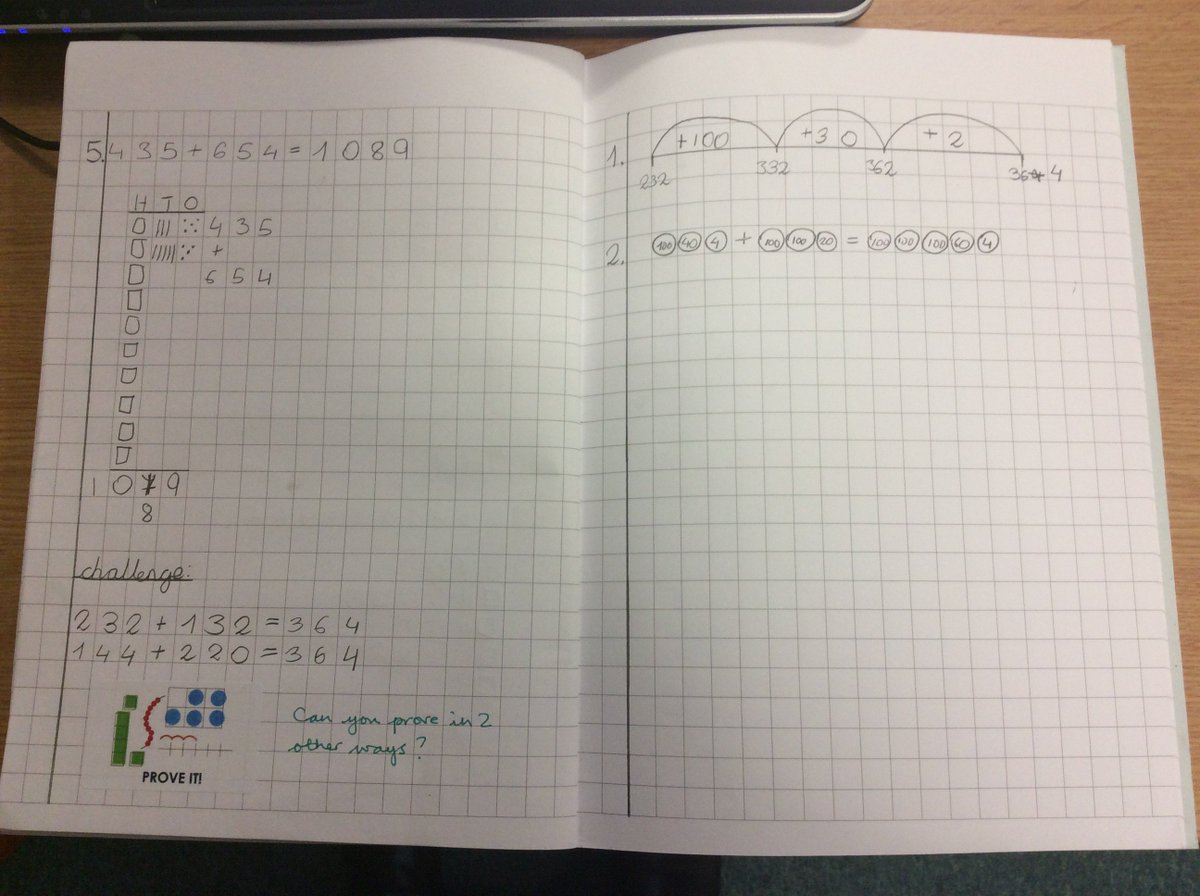 5. 435+654=1089
H T O
435
+
654
1079
8
challenge:
232+132=364
144+220=364
PROVE IT!
Can you prove in 2
other ways?
1. +100 +30 +2
232 332 362 364
2. 100 40 4 + 100 100 20 = 100 100 100 60 4